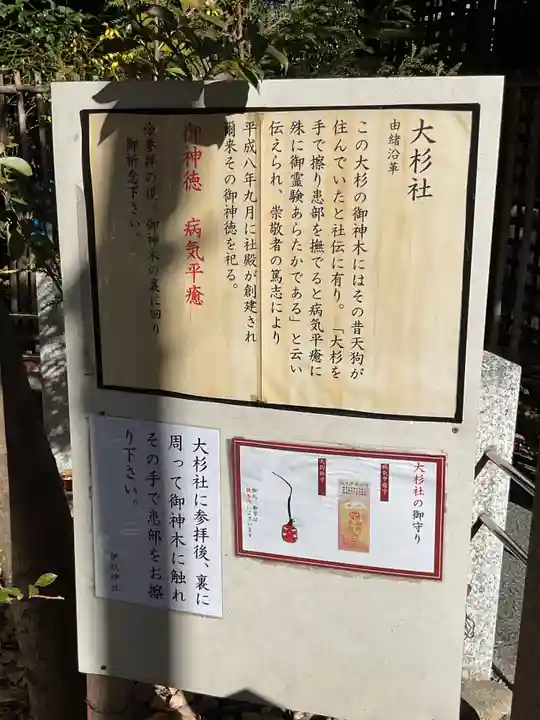 大杉社
由緒沿革
この大杉の御神木にはその昔天狗が
住んでいたと社伝に有り。「大杉を
手で擦り患部を撫でると病気平癒に
殊に御霊験あらたかである」と云い
伝えられ、崇敬者の篤志により
平成八年九月に社殿が創建され
爾来その御神徳を祀る。
御神徳　病気平癒
御参拝の後、御神木の裏に回り
御祈念下さい。
大杉社に参拝後、裏に
周って御神木に触れ
その手で患部をお擦
り下さい。
大杉社の御守り
病気平癒守